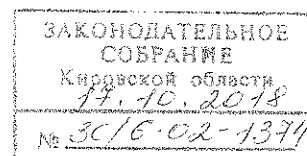 ЗАКОНОДАТЕЛЬНОЕ
СОБРАНИЕ
Кировской области
17.10.2018
№ ЗС/6-02-1374